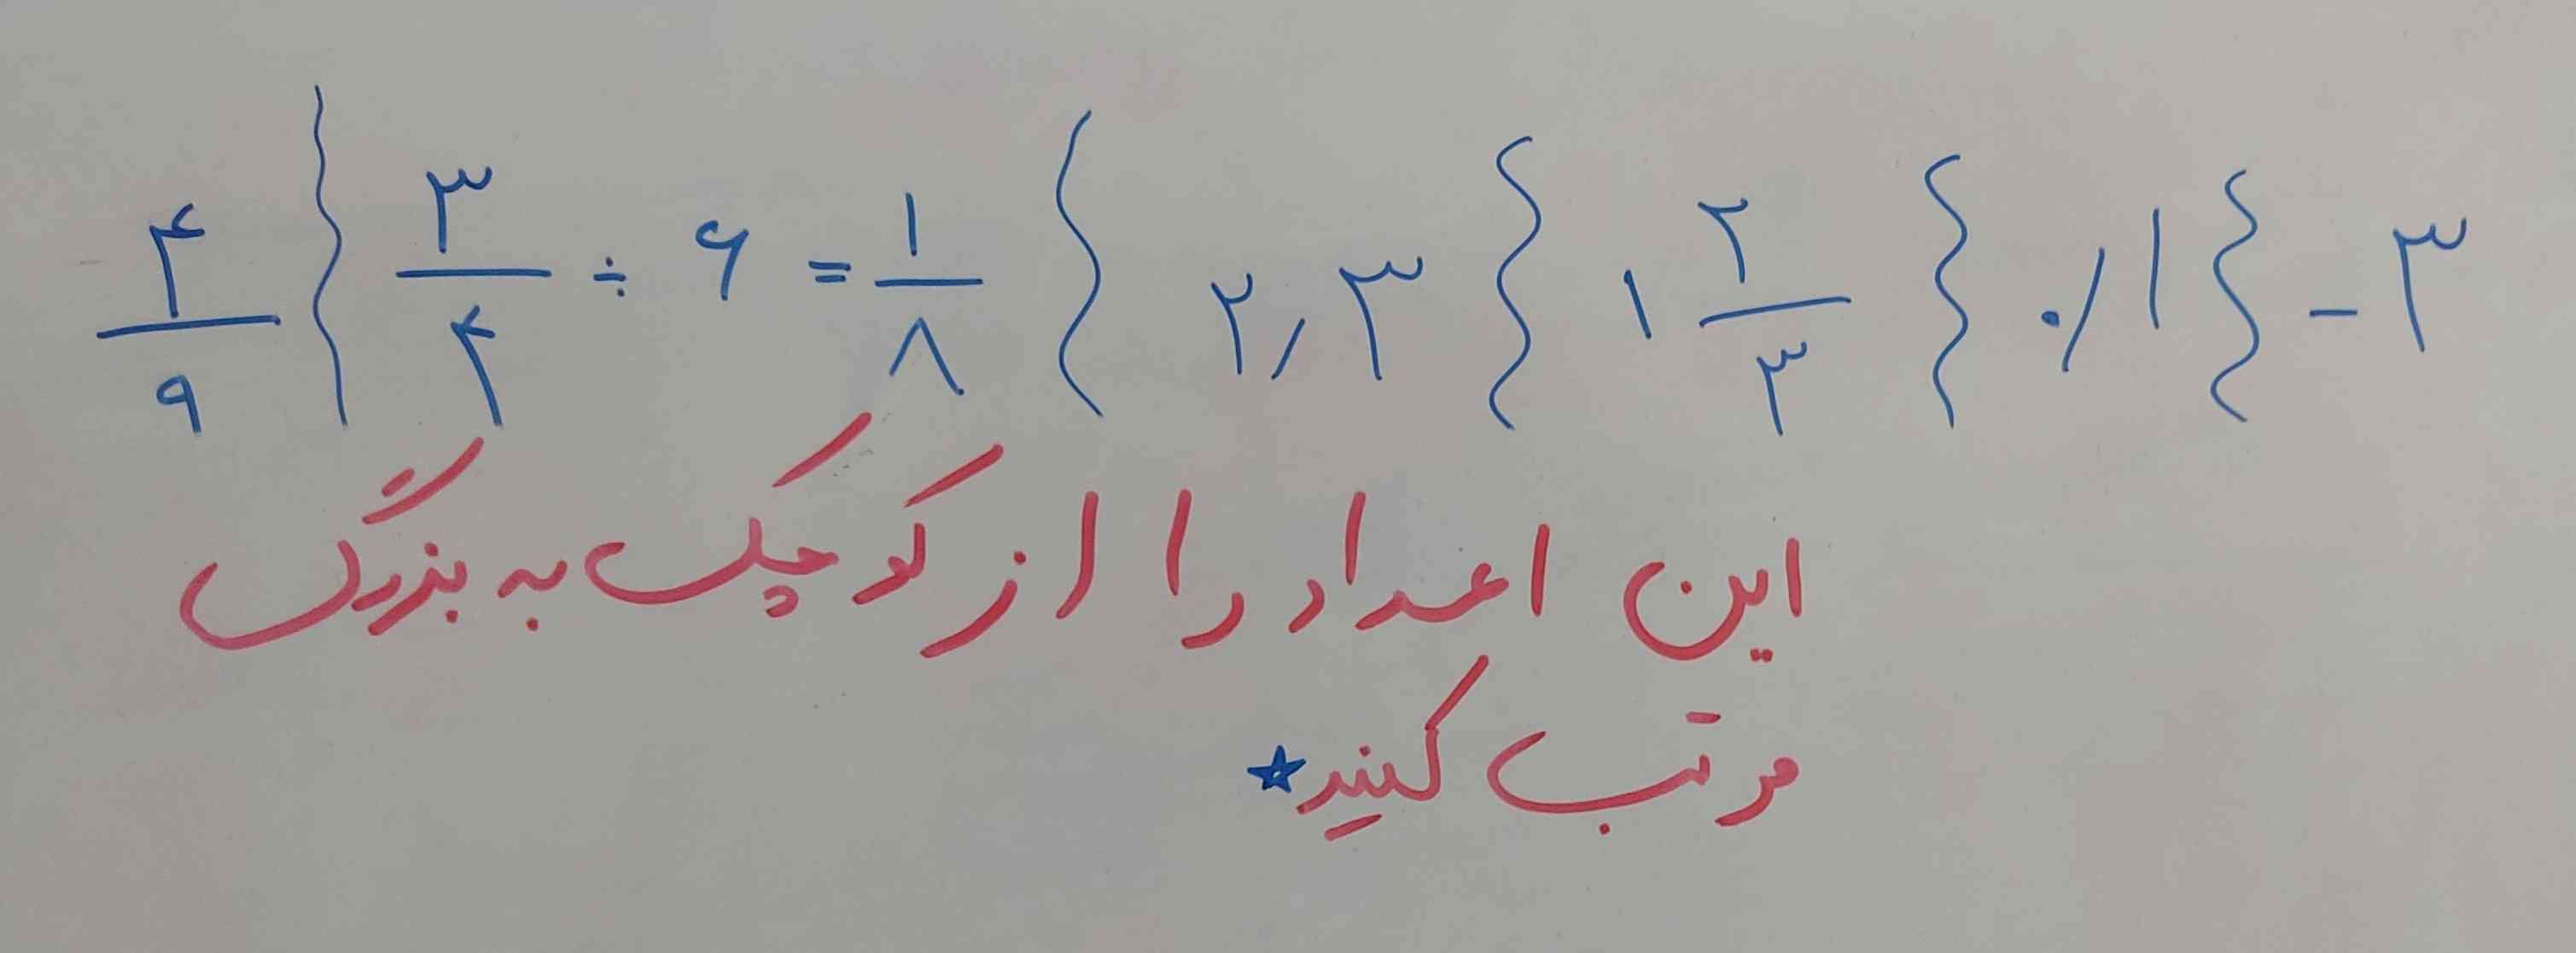 ۴/۹ { ۳/۴ ÷ ۶ = ۱/۸ { ۲٫۳ { ۱ ۲/۳ { ۰٫۱ { -۳
این اعداد را از کوچک به بزرگ
مرتب کنید★